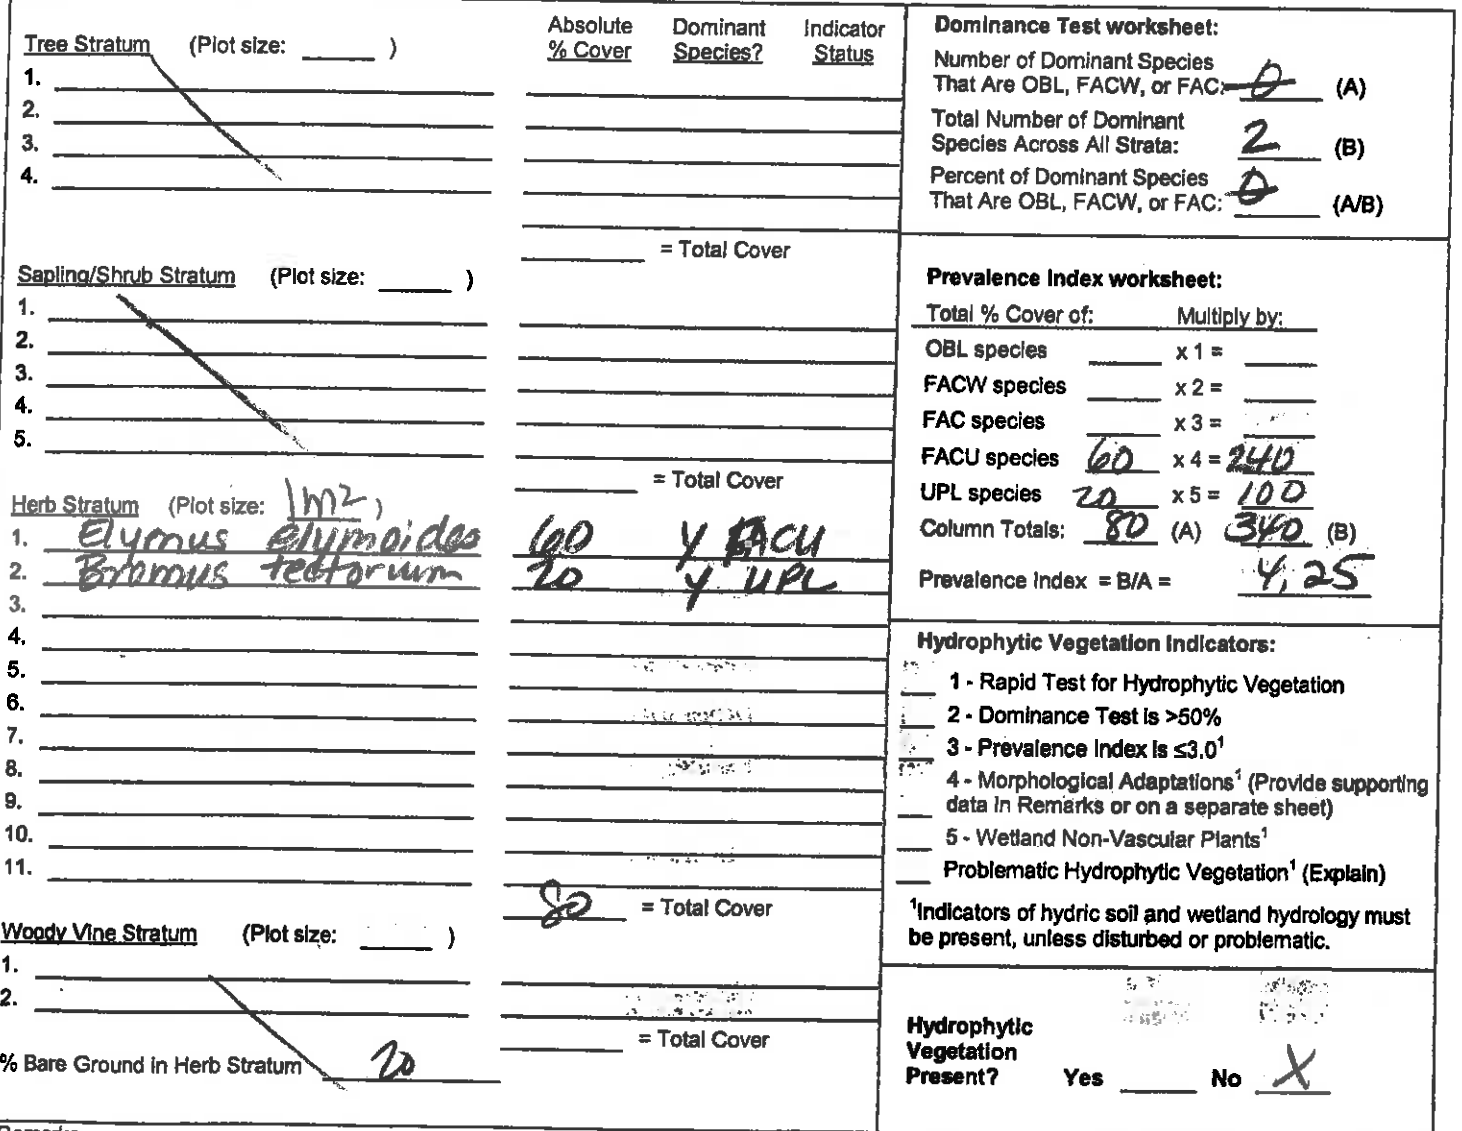 Absolute Dominant Indicator
Tree Stratum (Plot size: ______ ) % Cover Species? Status
1.
2.
3.
4.
______ = Total Cover
Sapling/Shrub Stratum (Plot size: ______ )
1.
2.
3.
4.
5.
______ = Total Cover
Herb Stratum (Plot size: 1m2 )
1. Elymus elymoides 60 Y FACU
2. Bromus tectorum 20 Y UPL
3.
4.
5.
6.
7.
8.
9.
10.
11.
80 = Total Cover
Woody Vine Stratum (Plot size: ______ )
1.
2.
______ = Total Cover
% Bare Ground in Herb Stratum 20
Dominance Test worksheet:
Number of Dominant Species
That Are OBL, FACW, or FAC: 0 (A)
Total Number of Dominant
Species Across All Strata: 2 (B)
Percent of Dominant Species
That Are OBL, FACW, or FAC: 0 (A/B)
Prevalence Index worksheet:
Total % Cover of: Multiply by:
OBL species ______ x 1 = ______
FACW species ______ x 2 = ______
FAC species ______ x 3 = ______
FACU species 60 x 4 = 240
UPL species 20 x 5 = 100
Column Totals: 80 (A) 340 (B)
Prevalence Index = B/A = 4,25
Hydrophytic Vegetation Indicators:
___ 1 - Rapid Test for Hydrophytic Vegetation
___ 2 - Dominance Test is >50%
___ 3 - Prevalence Index is ≤3.0¹
___ 4 - Morphological Adaptations¹ (Provide supporting
data in Remarks or on a separate sheet)
___ 5 - Wetland Non-Vascular Plants¹
___ Problematic Hydrophytic Vegetation¹ (Explain)
¹Indicators of hydric soil and wetland hydrology must
be present, unless disturbed or problematic.
Hydrophytic
Vegetation
Present? Yes ______ No X
Remarks